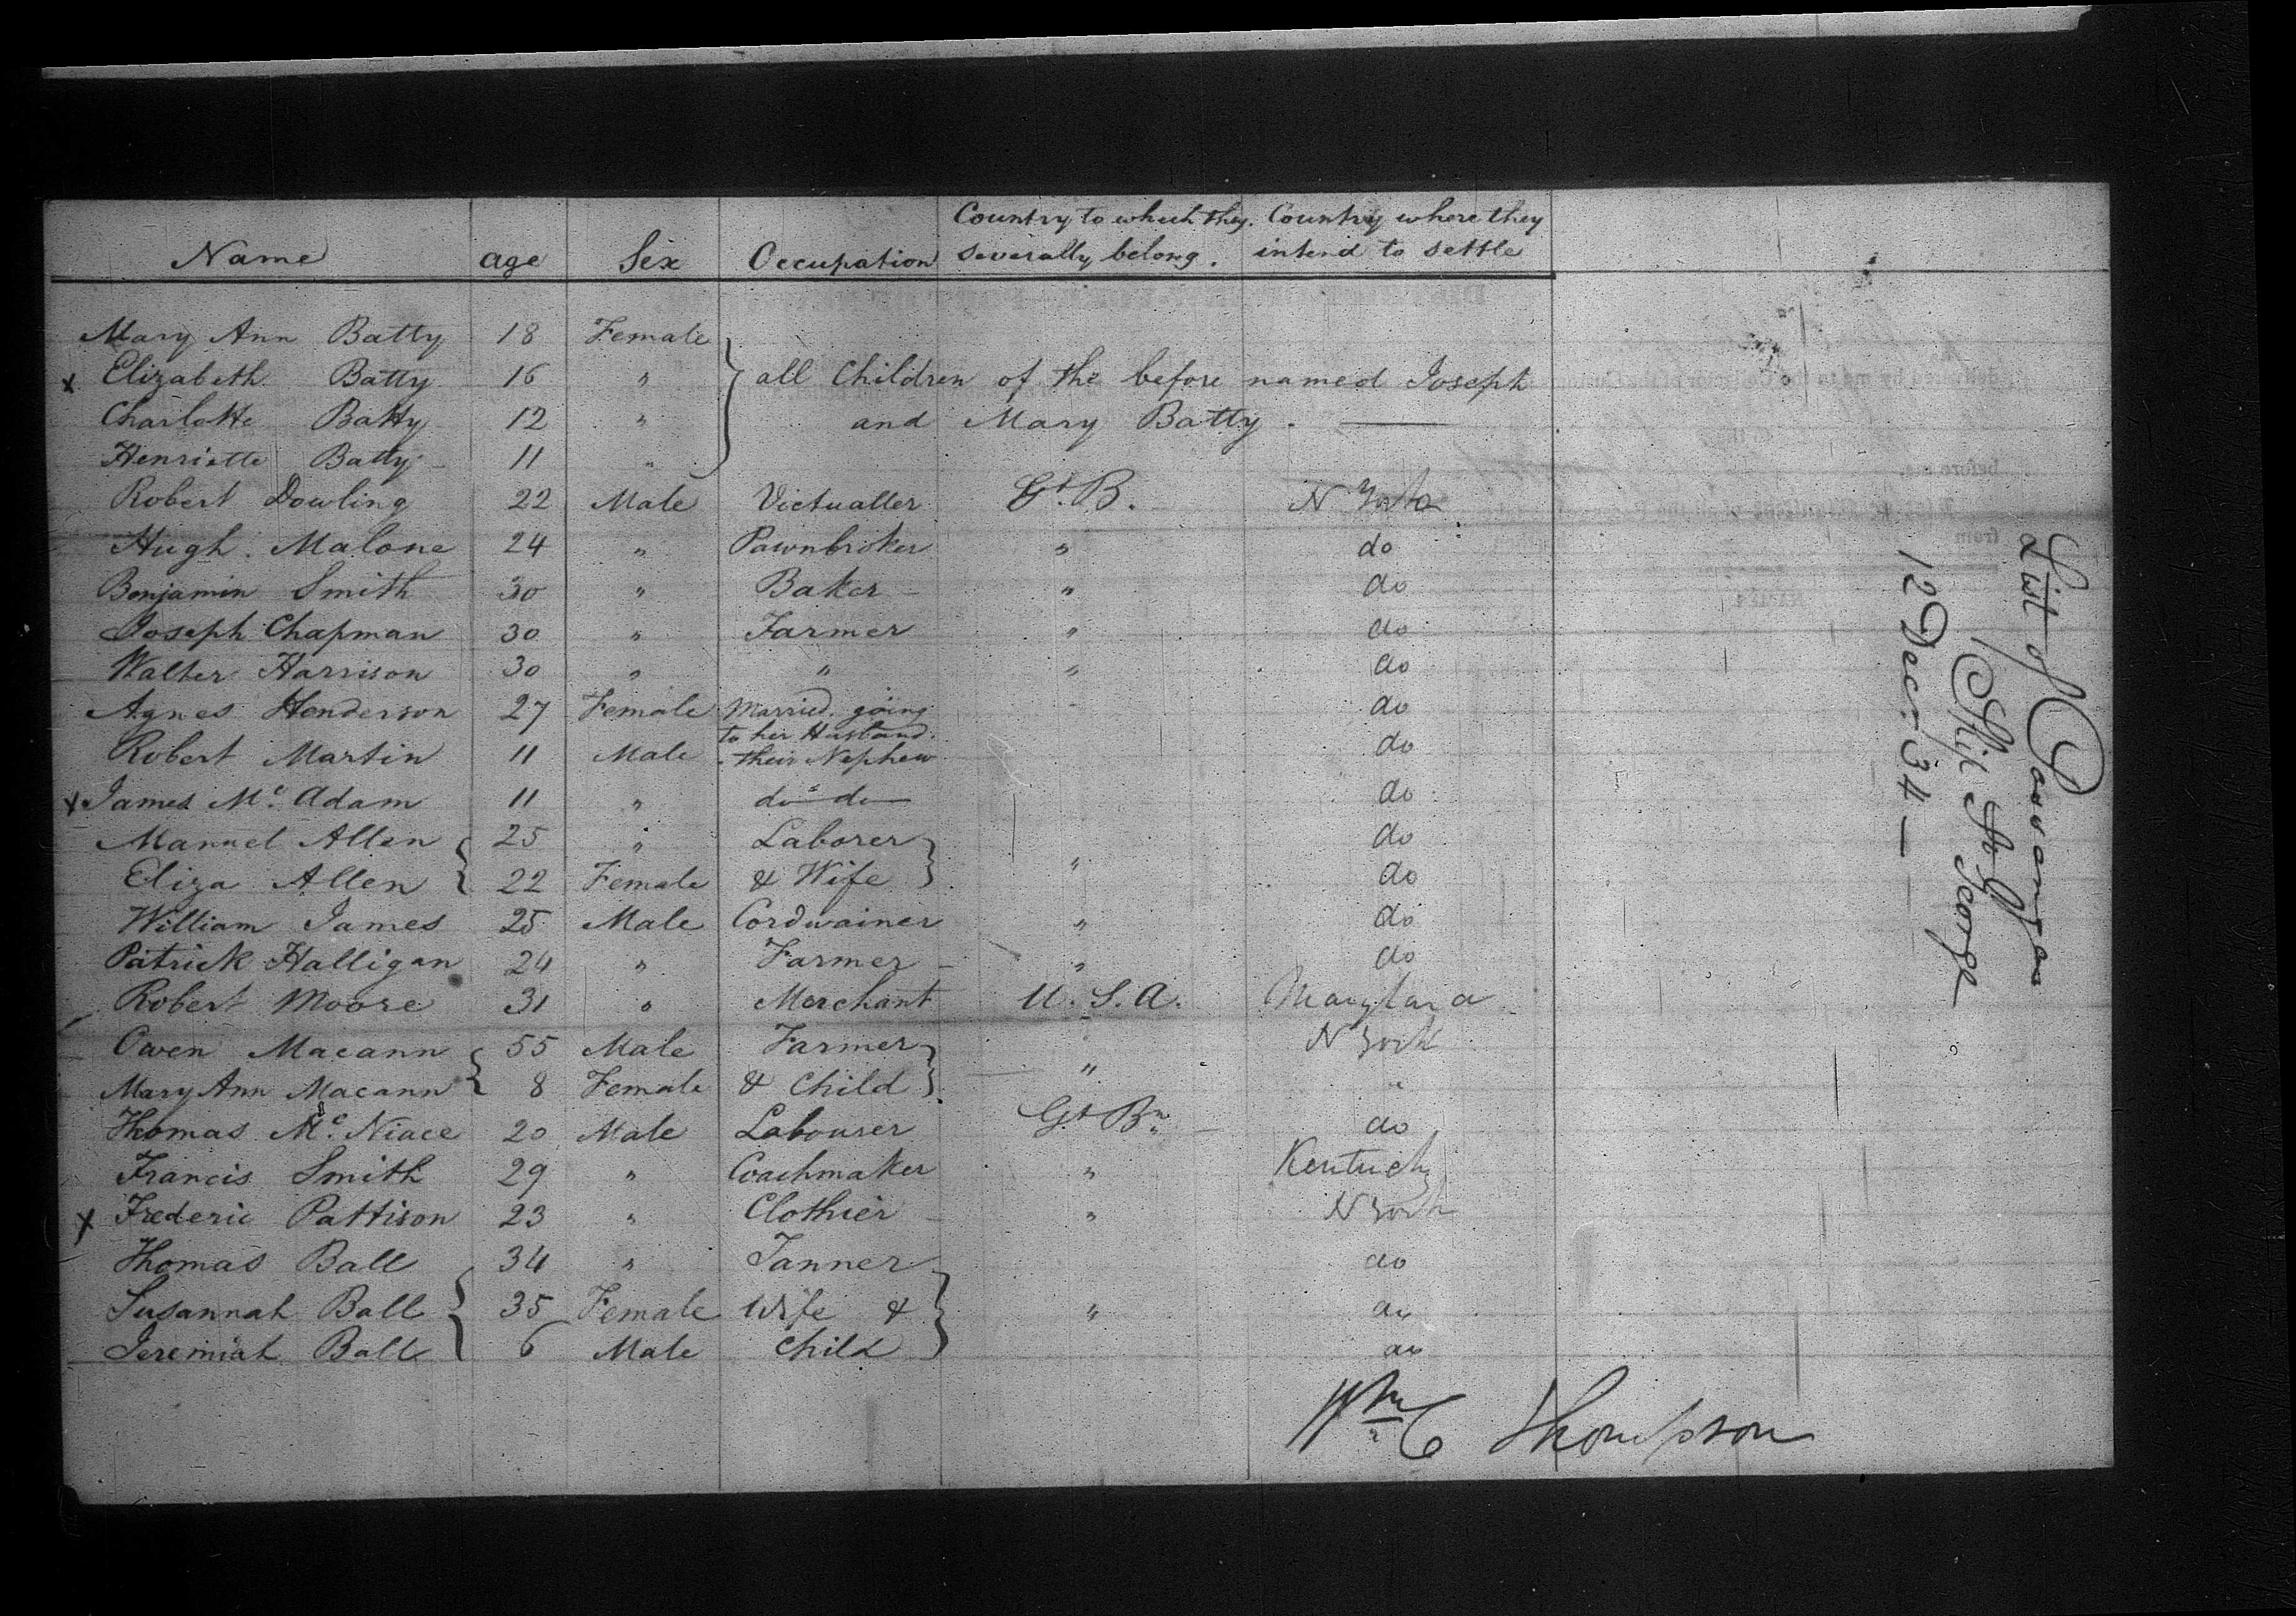 Name age Sex Occupation Country to which they severally belong. Country where they intend to settle
Mary Ann Batty 18 Female
x Elizabeth Batty 16 " } all Children of the before named Joseph
Charlotte Batty 12 " and Mary Batty. —
Henriette Batty 11 "
Robert Dowling 22 Male Victualler Gt. B. N York
Hugh Malone 24 " Pawnbroker " do
Benjamin Smith 30 " Baker " do
Joseph Chapman 30 " Farmer " do
Walter Harrison 30 " " " do
Agnes Henderson 27 Female Married going to her Husband. do
Robert Martin 11 Male their Nephew do
x James Mc. Adam 11 " do do do
Manuel Allen { 25 " Laborer } do
Eliza Allen { 22 Female & Wife } " do
William James 25 Male Cordwainer " do
Patrick Halligan 24 " Farmer " do
Robert Moore 31 " Merchant U. S. A. Maryland
Owen Macann { 55 Male Farmer } N York
Mary Ann Macann { 8 Female & Child } " "
Thomas Mc. Niace 20 Male Labourer Gt Bn. do
Francis Smith 29 " Coachmaker " Kentucky
x Frederic Pattison 23 " Clothier " N York
Thomas Ball 34 " Tanner do
Susannah Ball { 35 Female Wife & } " do
Jeremiah Ball { 6 Male Child } do
Wm C Thompson
List of Passengers
Ship St George
12 Decr. 34 —